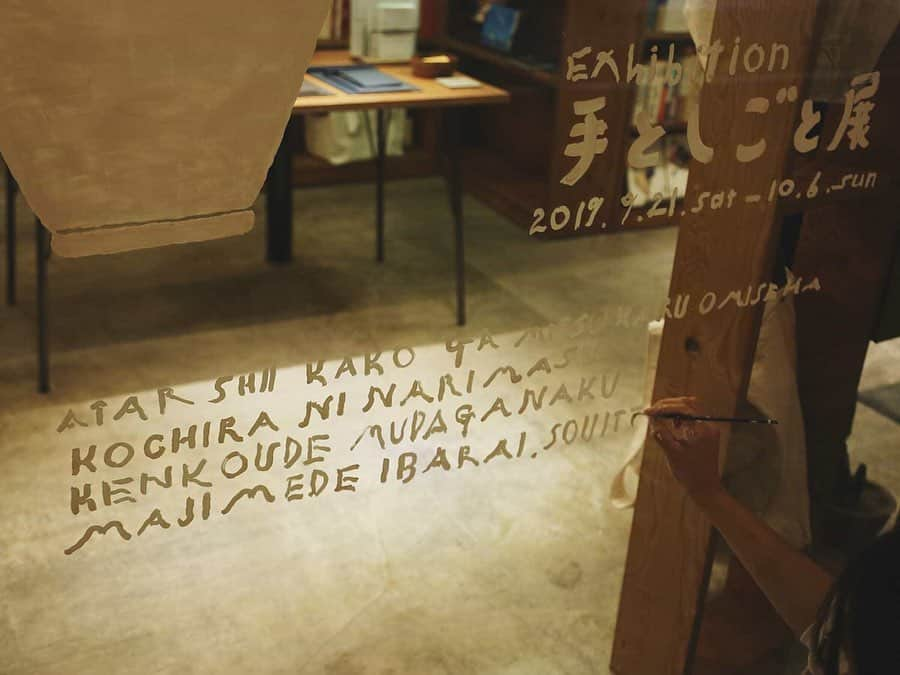 Exhibition
手としごと展
2019. 9.21.sat - 10.6.sun
ATARSHII KAKO GA MITSUKARU OMISEHA
KOCHIRA NI NARIMAS
KENKOUDE MUDAGANAKU
MAJIMEDE IBARAI. SOUIT